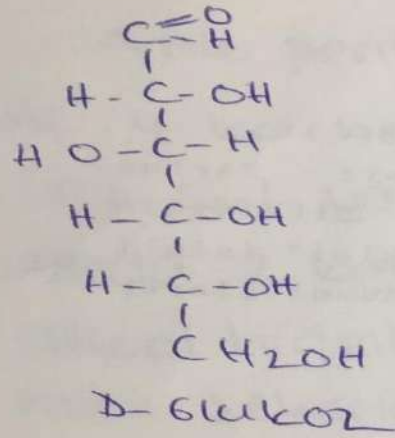 C=O
-H
H-C-OH
HO-C-H
H-C-OH
H-C-OH
CH2OH
D-Glukoz